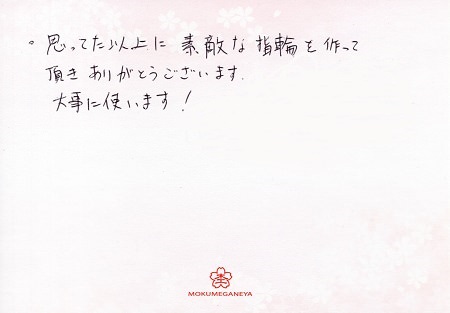 。思ってた以上に 素敵な指輪を作って
頂きありがとうございます.
大事に使います!
MOKUMEGANEYA